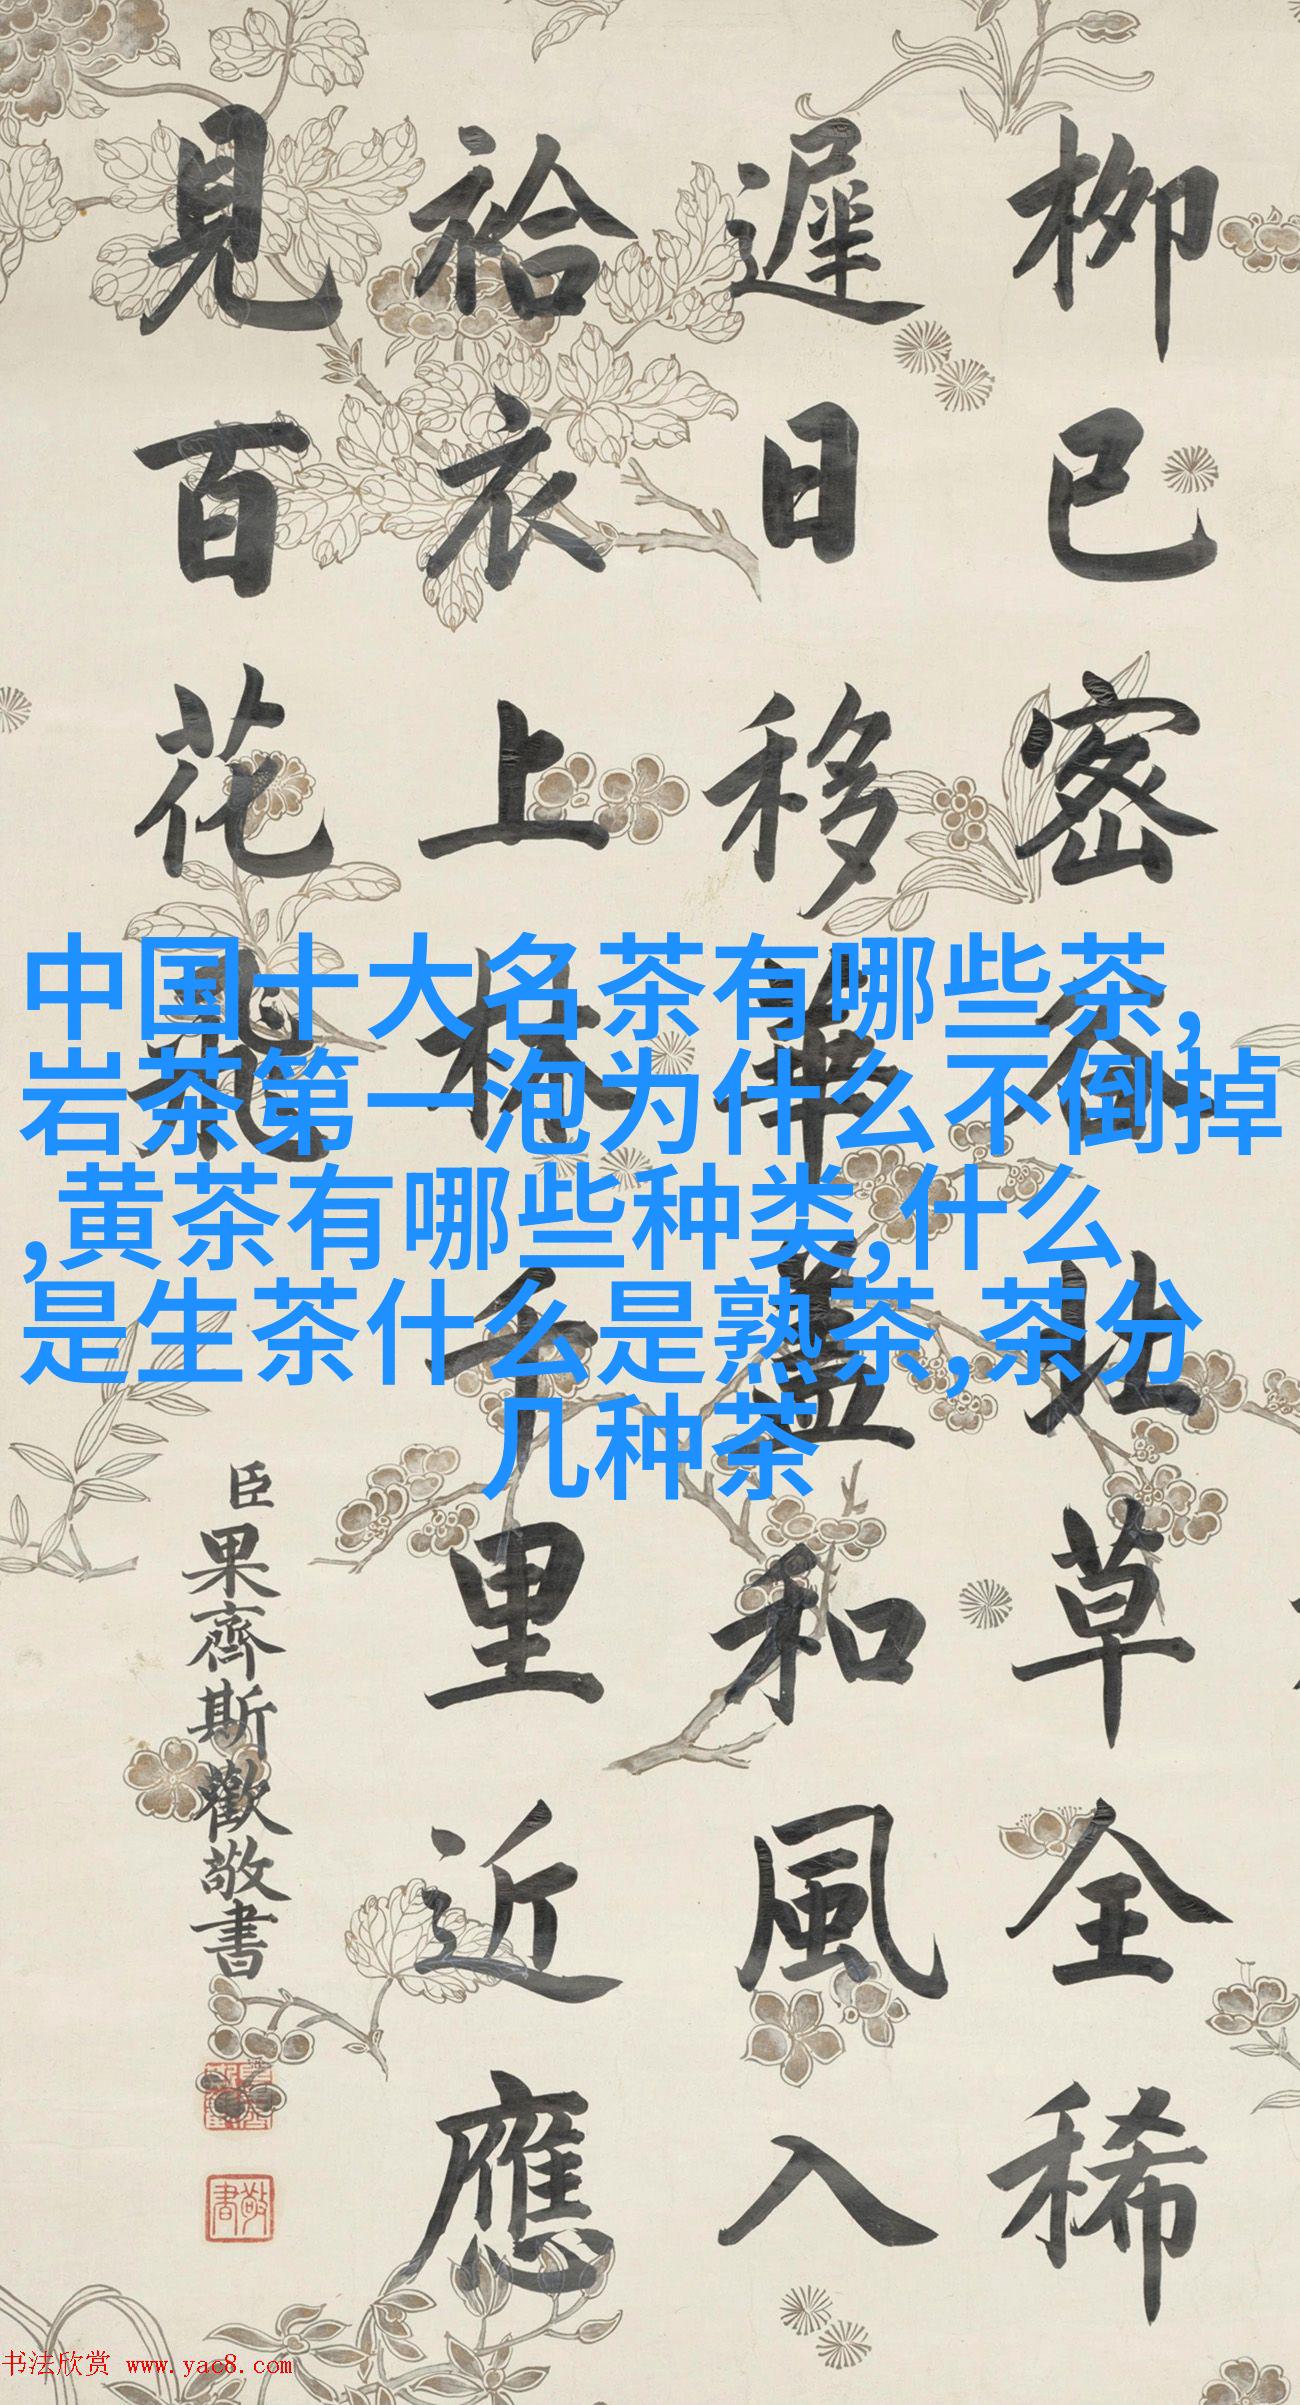 柳已密谷妣草全稀
遲日移華蓋和風入
袷衣上林千里近應
見百花飛
臣果齊斯歡敬書
敬書
中国十大名茶有哪些茶,
岩茶第一泡为什么不倒掉
,黄茶有哪些种类,什么
是生茶什么是熟茶,茶分
几种茶
书法欣赏 www.yac8.com